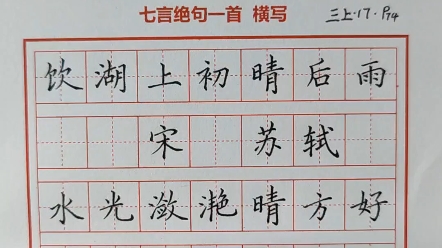 七言绝句一首 横写 三上·17·P74
饮湖上初晴后雨
宋 苏轼
水光潋滟晴方好